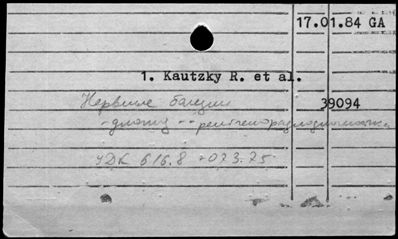 17.01.84 GA
1. Kautzky R. et al.
Нервные болезни 39094
УДК 616.8 +073.75